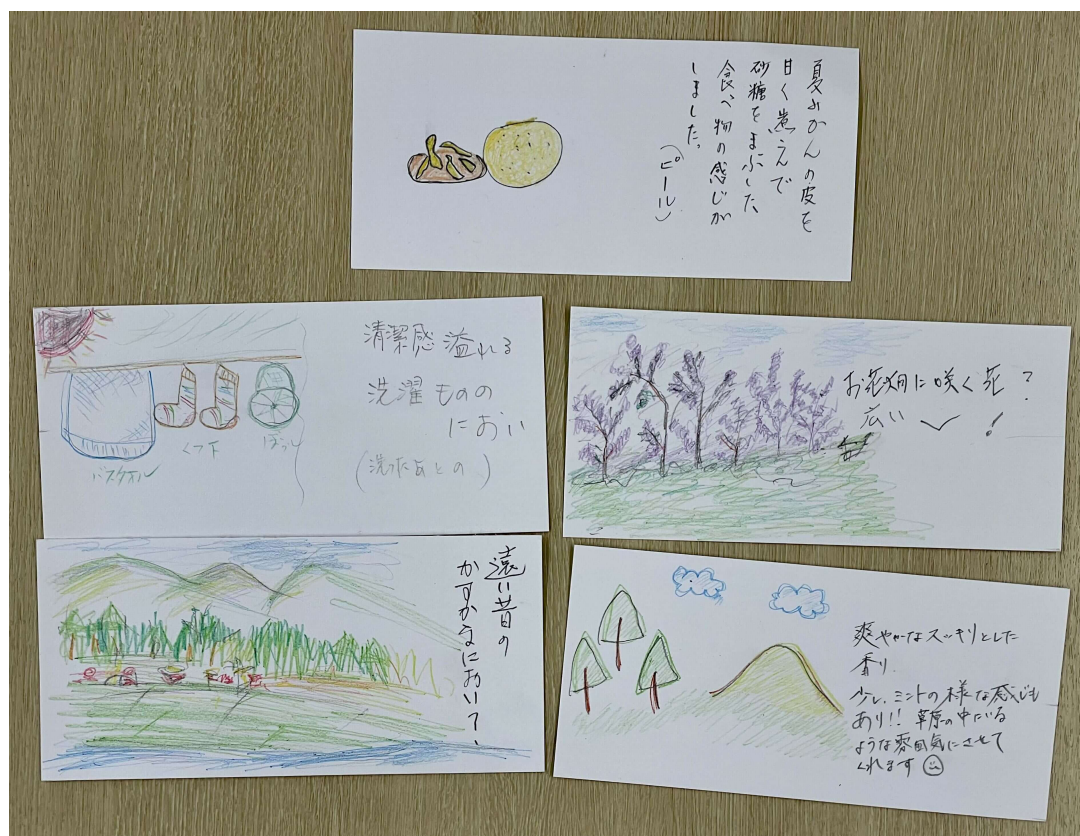 夏みかんの皮を
甘く煮こんで
砂糖をまぶした、
食べ物の感じが
しました。
(ピール)
清潔感溢れる
洗濯ものの
におい
(洗水あとの)
バスタオル
くつ下
ぼうし
お花畑に咲く花?
広い 〃 !
遠い昔の
かすかなにおい?
爽やかなスッキリとした
香り.
少し、ミントの様な感じも
あり!! 草原の中にいる
ような雰囲気にさせて
くれます